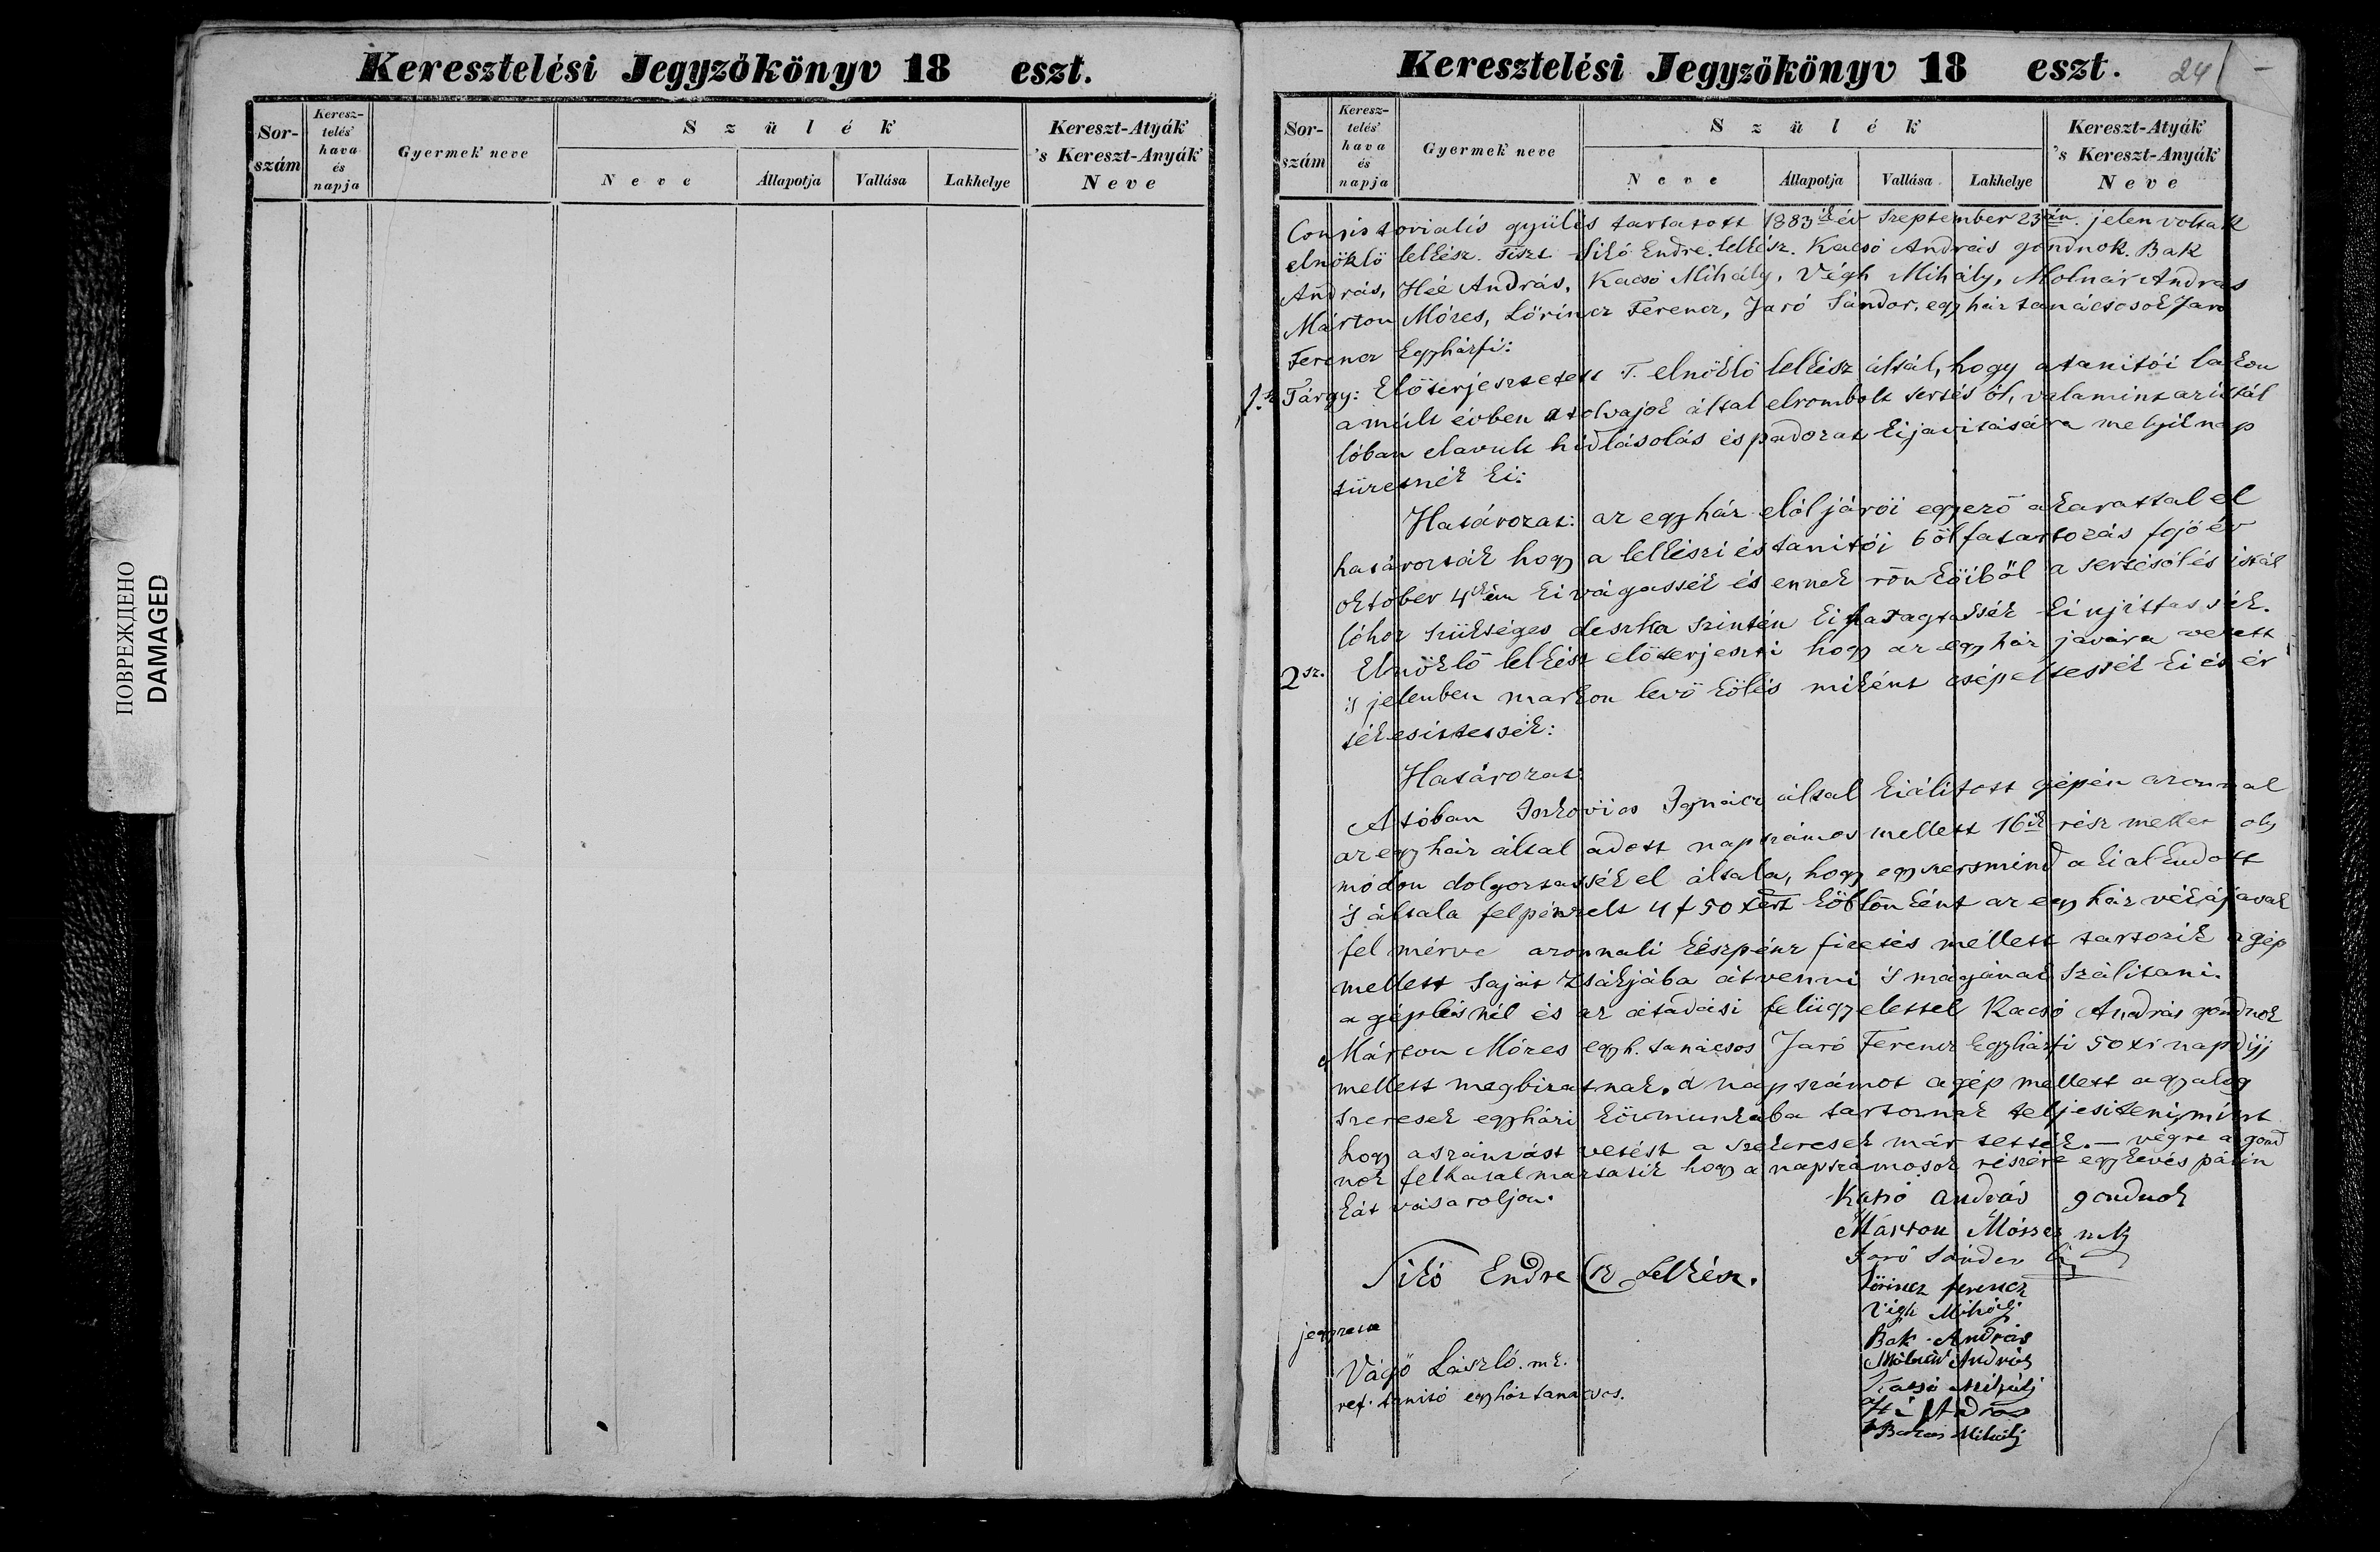 Keresztelési Jegyzőkönyv 18 eszt.
Sor-
szám
Keresz-
telés'
hava
és
napja
Gyermek' neve
Szülék'
Neve
Állapotja
Vallása
Lakhelye
Kereszt-Atyák'
's Kereszt-Anyák'
Neve
ПОВРЕЖДЕНО
DAMAGED
Keresztelési Jegyzőkönyv 18 eszt. 24
Sor-
szám
Keresz-
telés'
hava
és
napja
Gyermek' neve
Szülék'
Neve
Állapotja
Vallása
Lakhelye
Kereszt-Atyák'
's Kereszt-Anyák'
Neve
Consistorialis gyülés tartatott 1883ik év September 23án. jelen voltak
elnöklő lelkész. Tiszt Sikó Endre. lelkész. Kacsó András gondnok. Bak
András, Héé András, Kacsó Mihály, Végh Mihály, Molnár András
Márton Mózes, Lőrincz Ferencz, Jaró Sándor. egyház tanácsosok Jaró
Ferencz Egyházfi:
Tárgy: Előterjesztetett T. elnöklő lelkész által, hogy a tanitói lakon
a mult évben a tolvajok által elrombolt sertés ól, valamint az istál
lóban elavult hídlásolás és padozat kijavitására melyik nap
tüzetnék ki:
Határozat: az egyház elöljárói egyező akarattal el
határozták hogy a lelkészi és tanitói 6 öl fatartozás fojó év
október 4kén kivágassék és ennek rönkőiből a sertésól és istál
lóhoz szükséges deszka szintén ki ujittassék.
2sz. Elnöklő lelkész előterjeszti hogy az egyház javára vetett
's jelenben markon levő kölés miként csépeltessék ki és ér
tékesittessék:
Határozat:
A tóban Ignácz által kiálitott gépén azonnal
az egyház által adott napszámos mellett 16ik rész mellett oly
módon dolgoztassék el általa, hogy egyszersmind a kialkudott
's általa felpénzelt 4 f 50 köblönként az egyház vékájával
fel mérve azonnali készpénz fizetés mellett tartozik a gép
mellett saját zsákjába átvenni 's magának szálitani.
a géplésnél és az átadási felügyelettel Kacsó András gondnok
Márton Mózes egyh. tanácsos Jaró Ferencz Egyházfi 50 xr napdijj
mellett megbizatnak. a napszámot a gép mellett a gyalog
szeresek egyházi közmunkába tartoznak teljesiteni, mint
hogy a szántást vetést a szekeresek már tették. — végre a gond
nok felhatalmaztatik hogy a napszámosok részére egy kevés pálin
kát vásároljon.
Kacsó András gondnok
Márton Mózses mk
Jaró Sándor
Sikó Endre lelkész.
Lőrincz ferencz
Végh Mihály
jegyzette
Bak András
Vágó László. mk.
Molnár András
ref. tanitó egyház tanácsos.
Kacsó Mihálj
Hé András
Mihálj